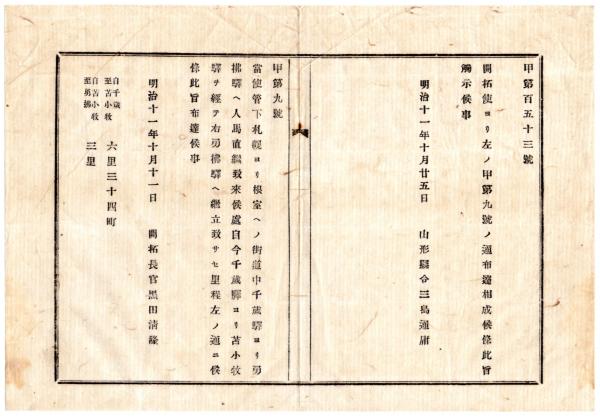 甲第百五十三號
開拓使ヨリ左ノ甲第九號ノ通布達相成候條此旨
觸示候事
明治十一年十月廿五日　山形縣令三島通庸
甲第九號
當使管下札幌ヨリ根室ヘノ街道中千歳驛ヨリ勇
拂驛ヘ人馬直繼致來候處自今千歳驛ヨリ苫小牧
驛ヲ經テ右勇拂驛ヘ繼立致サセ里程左ノ通ニ候
條此旨布達候事
明治十一年十月十一日　開拓長官黑田清隆
自千歳
至苫小牧　六里三十四町
自苫小牧
至勇拂　三里